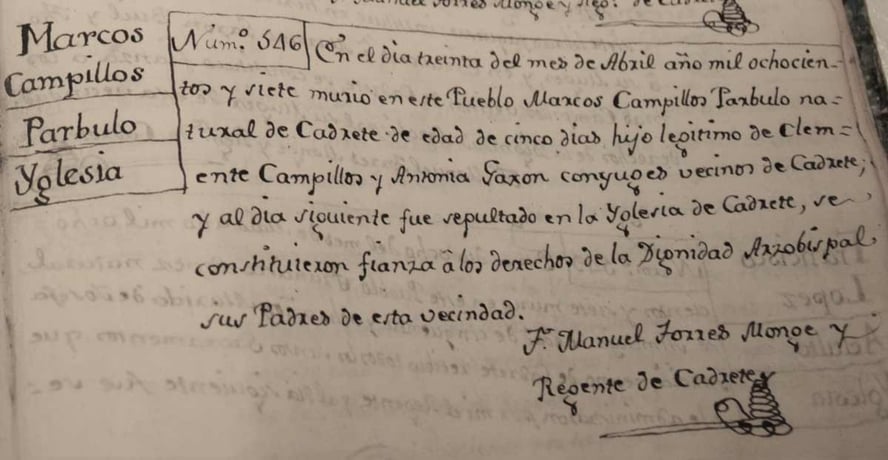 Marcos
Campillos
Parbulo
Yglesia
Num.º 546
En el dia treinta del mes de Abril año mil ochocien=
tos y siete murio en este Pueblo Marcos Campillos Parbulo na=
tural de Cadrete de edad de cinco dias hijo legitimo de Clem=
ente Campillos y Antonia Gaxon conyuges vecinos de Cadrete;
y al dia siguiente fue sepultado en la Yglesia de Cadrete, se
constituieron fianza â los derechos de la Dignidad Arzobispal
sus Padres de esta vecindad.
Fr. Manuel Torres Monge y
Regente de Cadrete